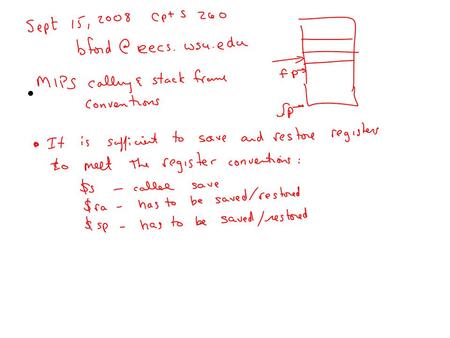 Sept 15, 2008 CptS 260
bford@eecs.wsu.edu
• MIPS calling & stack frame
conventions
fp
sp
• It is sufficient to save and restore registers
to meet the register conventions:
$s – callee save
$ra – has to be saved/restored
$sp – has to be saved/restored